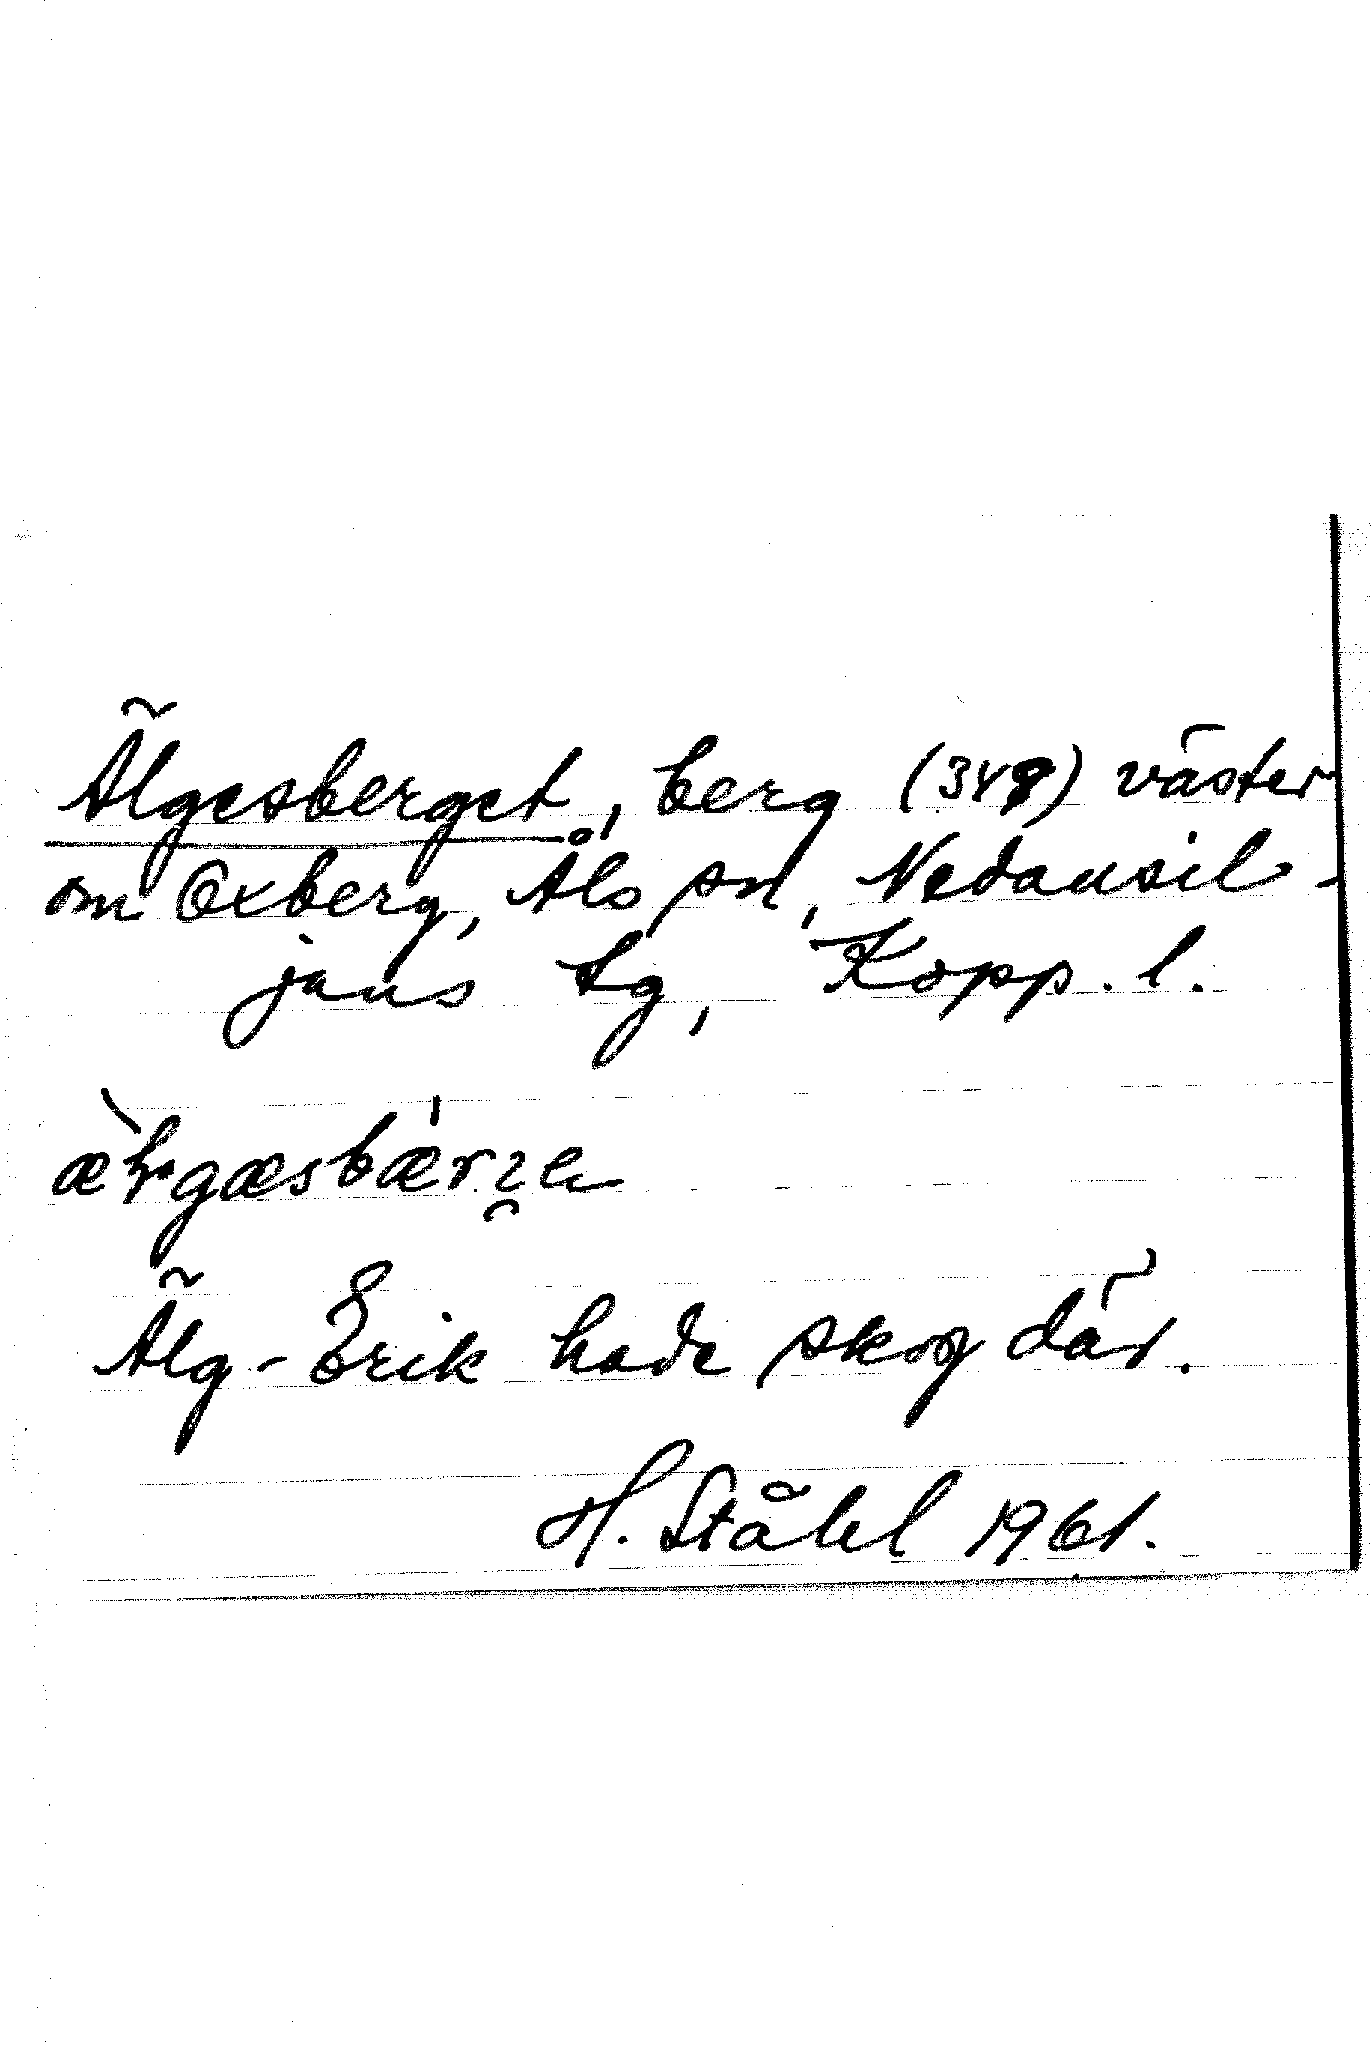 Älgesberget, berg (348) väster
om Oxberg, Åls sn, Nedansil-
jans tg, Kopp. l.
Älg-Erik hade skog där.
H. Ståhl 1961.